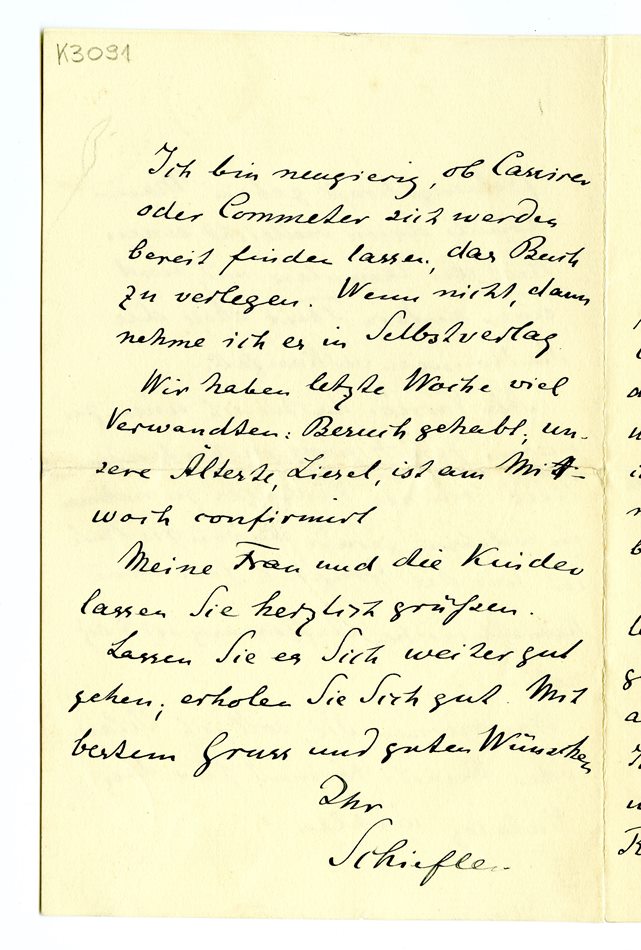 K3091
Ich bin neugierig, ob Cassirer
oder Commeter sich werden
bereit finden lassen, das Buch
zu verlegen. Wenn nicht, dann
nehme ich es in Selbstverlag
Wir haben letzte Woche viel
Verwandten: Besuch gehabt; un-
sere Älteste, Liesel, ist am Mitt-
woch confirmirt
Meine Frau und die Kinder
lassen Sie herzlich grüßen.
Lassen Sie es Sich weiter gut
gehen; erholen Sie Sich gut. Mit
bestem Gruss und guten Wünschen
Ihr
Schiefler.